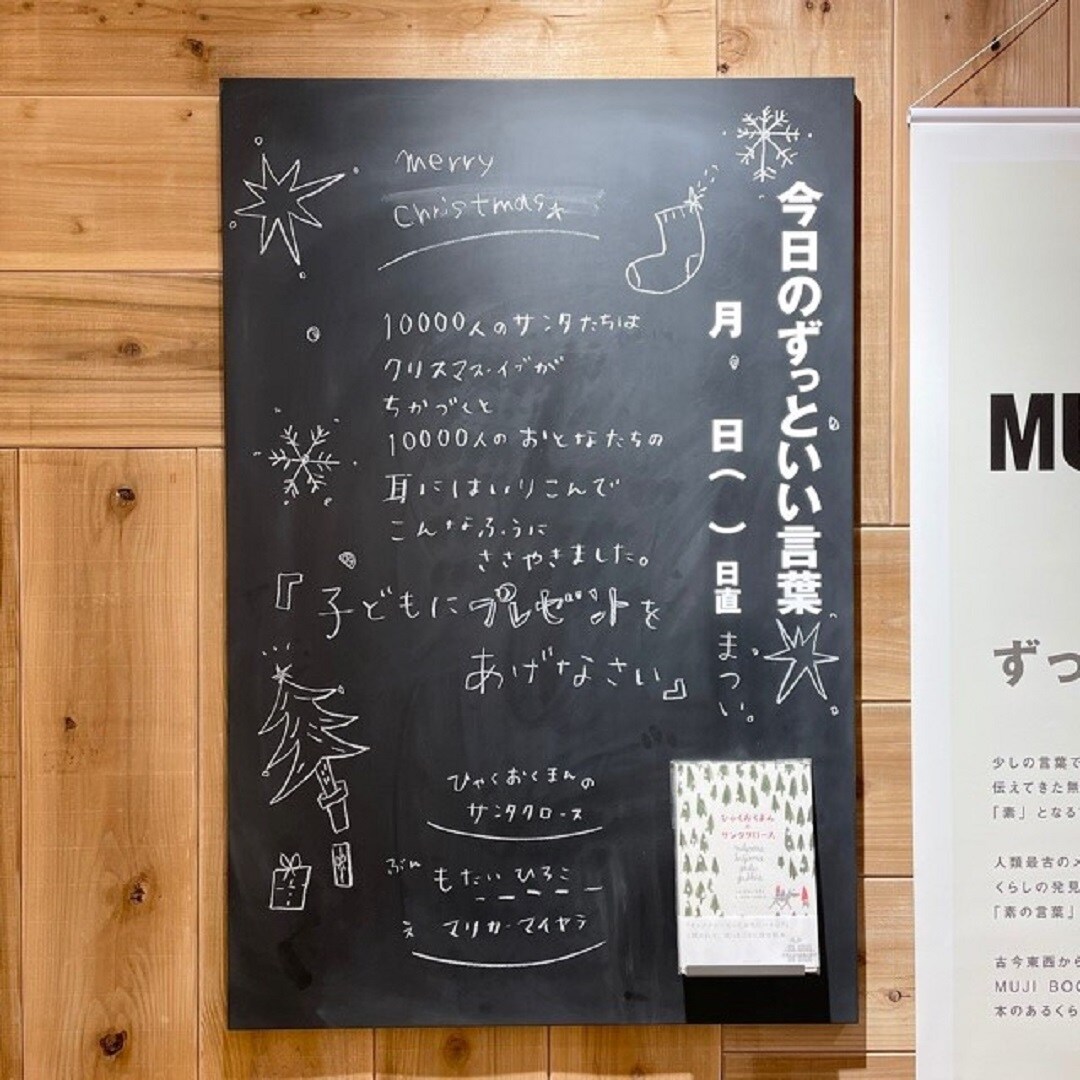 merry
christmas
今日のずっといい言葉
月 日( ) 日直 まつい。
10000人のサンタたちは
クリスマス・イブが
ちかづくと
10000人のおとなたちの
耳にはいりこんで
こんなふうに
ささやきました。
『子どもにプレゼントを
あげなさい』
ひゃくおくまんの
サンタクロース
ぶん もたい ひろこ
え マリカ・マイヤラ
ひゃくおくまんの
サンタクロース
MU
ずっ
少しの言葉で
伝えてきた無
「素」となる
人類最古のメ
くらしの発見
「素の言葉」
古今東西から
MUJI BOO
本のあるくら